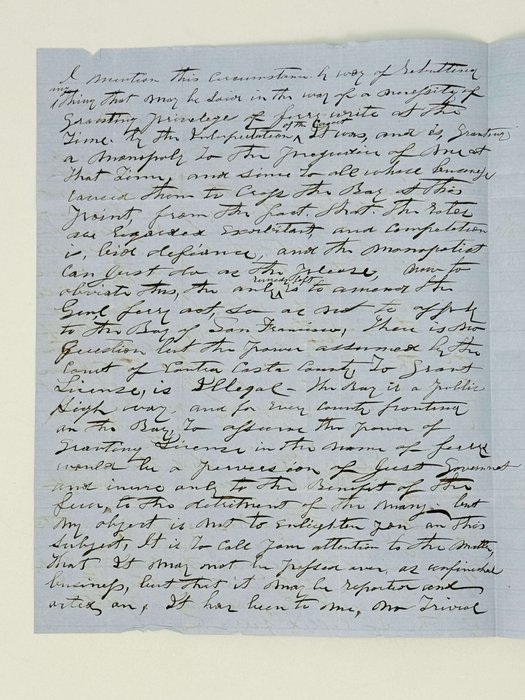 I mention this circumstance by way of Rebutting
any
thing that may be said in the way of a necessity of
Granting privilege of ferry write at the
Time. By the Interpretation of the Court It was, and is, Granting
a monopoly to the prejudice of me at
that Time, and since to all whose business
caused them to Cross the Bay at this
point, from the fact that the Rates
are Regarded Exorbitant, and Competition
is, bid defiance, and the monopolist
Can Just do as the please, now to
obviate this, the only remedy left is to amend the
Genl ferry act, so as not to apply
to the Bay of San Francisco, There is no
Question but the power assumed by the
Court of Contra Costa County To Grant
License, is Illegal - The Bay is a public
High way and for every county fronting
on the Bay, To assume the power of
Granting License in the name of ferry
would be a perversion of Just Government
and inure only to the Benefit of the
few, to the detriment of the many, but
My object is not to Enlighten you on this
Subject, It is To call your attention to the matter,
that It may not be passed over, as unfinished
business, but that it may be reported and
acted on, It has been to me, no Trivial